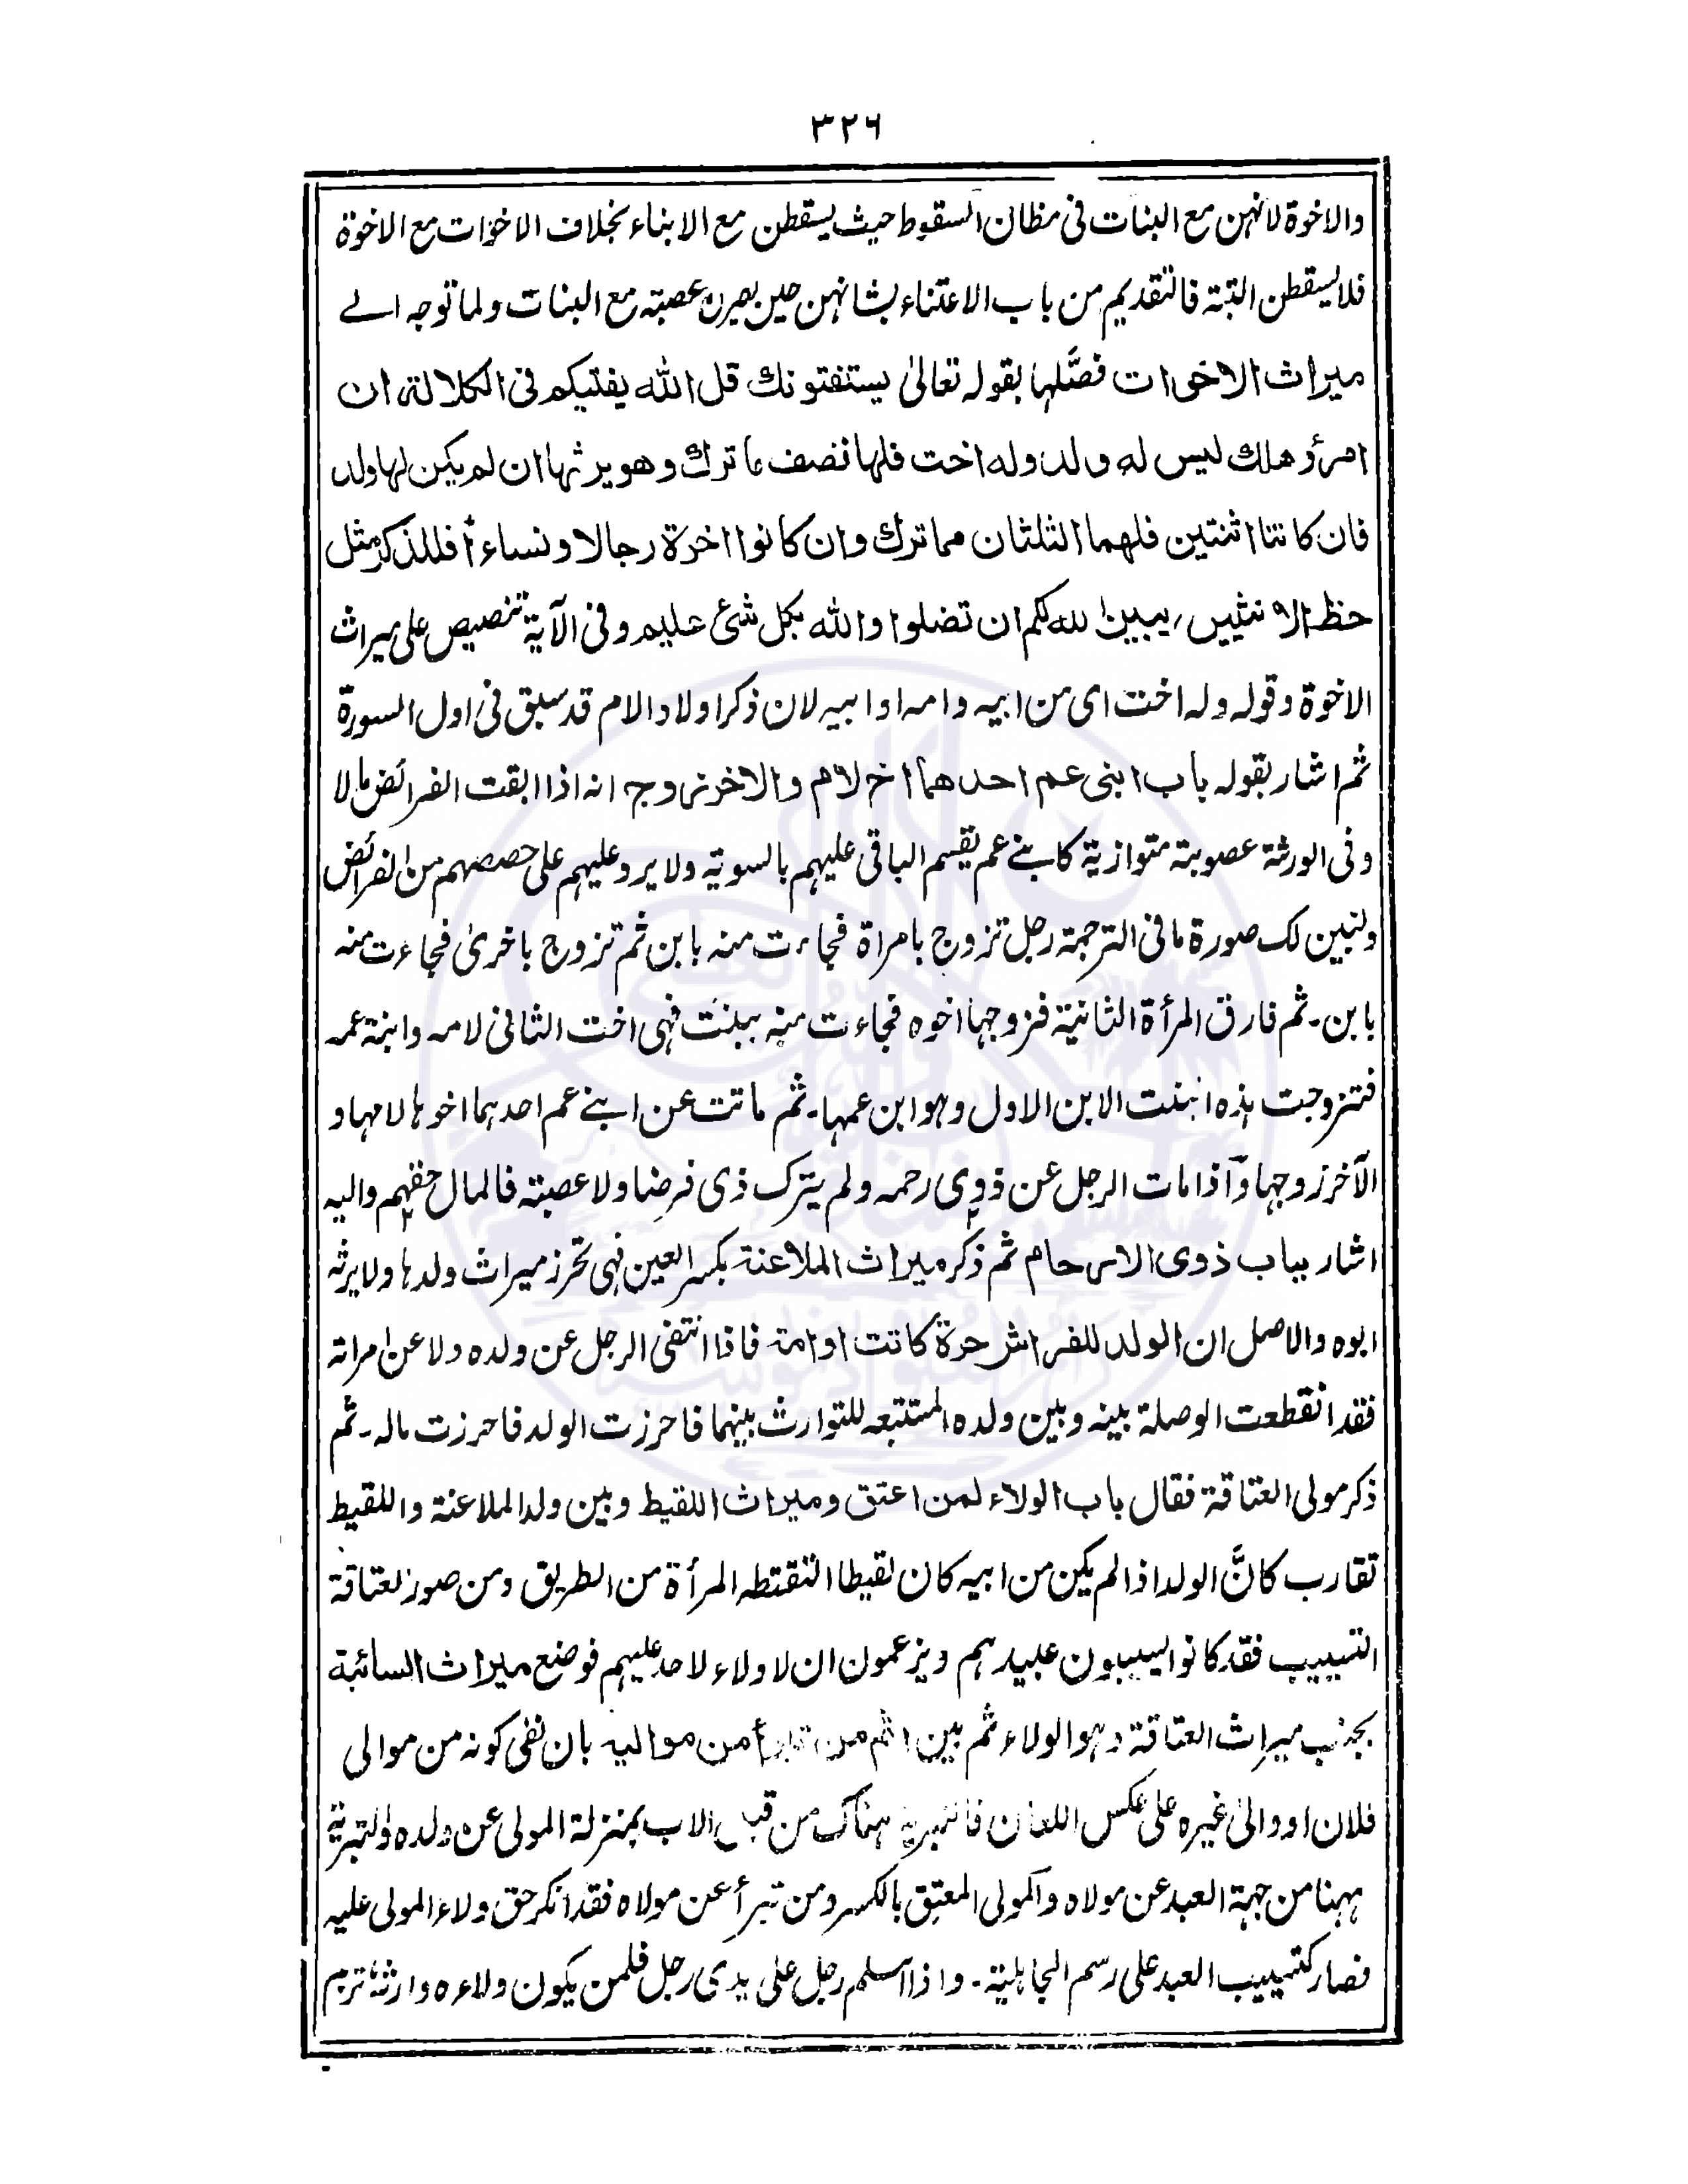 ٣٢٦
والاخوة لانهن مع البنات فى مظان السقوط حيث يسقطن مع الابناء بخلاف الاخوات مع الاخوة
فلا يسقطن البتة فالتقديم من باب الاعتناء بشانهن حين يصرن عصبته مع البنات ولما توجه الے
ميراث الاخوات فصَّلها بقوله تعالىٰ يستفتونك قل الله يفتيكم فى الكلالة ان
امرؤ هلك ليس له ولد وله اخت فلها نصف ما ترك وهو يرثها ان لم يكن لها ولد
فان كانتا اثنتين فلهما الثلثان مما ترك وان كانوا اخوة رجالا ونساءً فللذكر مثل
حظ الانثيين يبين الله لكم ان تضلوا والله بكل شئ عليم وفى الآية تنصيص على ميراث
الاخوة وقوله وله اخت اى من ابيه وامه او ابيه لان ذكر اولاد الام قد سبق فى اول السورة
ثم اشار بقوله باب ابنى عم احدهما اخ لام والاخر زوج انه اذا ابقت الفرائض مالا
وفى الورثة عصوبته متوازية كابنے عم يقسم الباقى عليهم بالسوية ولا يرد عليهم على حصصهم من الفرائض
ولنبين لك صورة ما فى الترجمة رجل تزوج بامراة فجاءت منه بابن ثم تزوج باخرىٰ فجاءت منه
بابن۔ ثم فارق المرأة الثانية فزوجها اخوه فجاءت منه ببنت فهى اخت الثانى لامه وابنة عمه
فتزوجت هذه البنت الابن الاول وهو ابن عمها۔ ثم ماتت عن ابنے عم احدهما اخوها لامها و
الآخر زوجها وآذا مات الرجل عن ذوى رحمه ولم يترك ذى فرضا ولا عصبته فالمال حقهم واليه
اشار بباب ذوى الارحام ثم ذكر ميراث الملاعنة بكسر العين فهى تحرز ميراث ولدها ولا يرثه
ابوه والاصل ان الولد للفراش حرة كانت او امة فاذا انتفى الرجل عن ولده ولا عن امراته
فقد انقطعت الوصلة بينه وبين ولده المستتبعه للتوارث بينهما فاحرزت الولد فاحرزت ماله۔ ثم
ذكر مولى العتاقة فقال باب الولاء لمن اعتق وميراث اللقيط وبين ولد الملاعنة واللقيط
تقارب كانَّ الولد اذا لم يكن من ابيه كان لقيطا التقتطه المرأة من الطريق ومن صور العتاقة
التسييب فقد كانوا يسيبون عبيدهم ويزعمون ان لا ولاء لاحد عليهم فوضع ميراث السائبة
بجنب ميراث العتاقة وهو الولاء ثم بين اثم من تبرأ من مواليه بان نفى كونه من موالى
فلان او والىٰ غيره على عكس اللعان فالتبرية هناك من قبل الاب بمنزلة المولى عن ولده والتبرية
ههنا من جهة العبد عن مولاه والمولى المعتق بالكسر ومن تبرأ عن مولاه فقد انكر حق ولاء المولى عليه
فصار كتسييب العبد على رسم الجاهلية۔ واذا اسلم رجل على يدى رجل فلمن يكون ولاءه وارثه ترجم